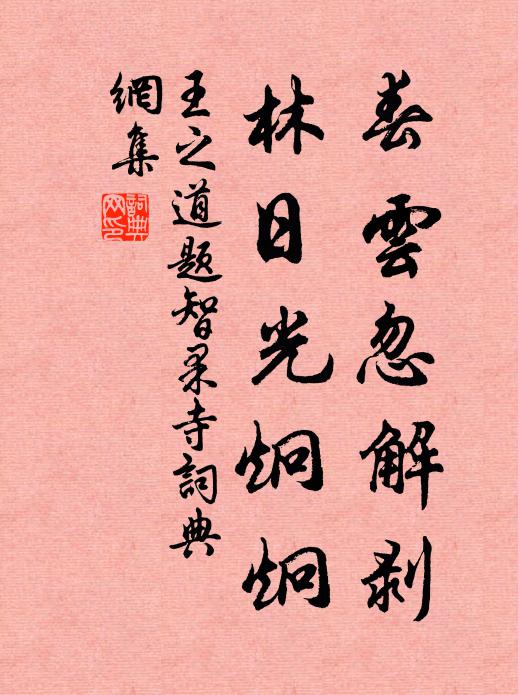 春雲忽解剥
林日光炯炯
王之道題智果寺詞典
網集
詞典網印